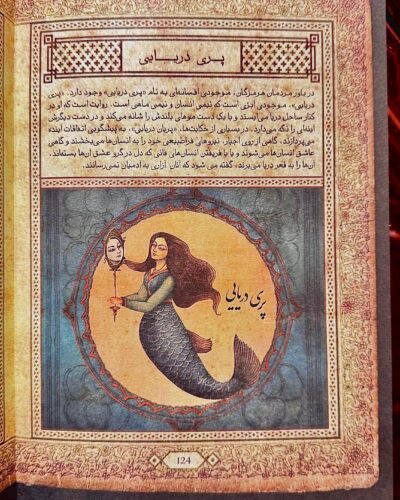 پری دریایی
در باور مردمان هرمزگان، موجودی افسانه‌ای به نام «پری دریایی» وجود دارد. «پری
دریایی»، موجودی آبزی است که نیمی انسان و نیمی ماهی است. روایت است که او در
کنار ساحل دریا می‌ایستد و با یک دست موهای بلندش را شانه می‌کند و در دست دیگرش
آینه‌ای را نگه می‌دارد. در بسیاری از حکایت‌ها، «پریان دریایی»، به پیشگویی اتفاقات آینده
می‌پردازند، گاهی از روی اجبار، نیروهای فراطبیعی خود را به انسان‌ها می‌بخشند و گاهی
عاشق انسان‌ها می‌شوند و یا با فریفتن انسان‌های فانی که دل در گرو عشق آن‌ها بسته‌اند،
آن‌ها را به قعر دریا می‌برند. گفته می شود که آنان آزاری به آدمیان نمی‌رسانند.
پری دریایی
124